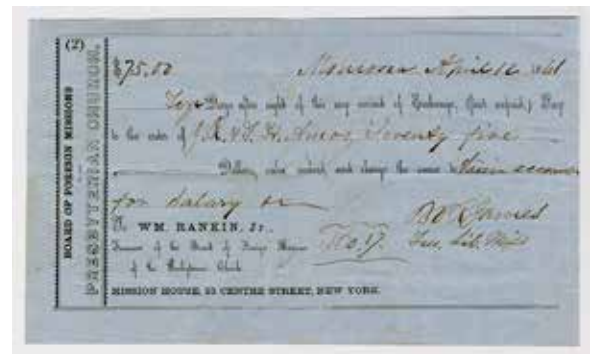 (2)
BOARD OF FOREIGN MISSIONS
PRESBYTERIAN CHURCH.
$75.00 Monrovia April 12 1861
Ten Days after sight of this my second of Exchange, (first unpaid,) Pay
to the order of J. R. & T. H. Amos, Seventy five
Dollars, value received, and charge the same to their account
for Salary
To WM. RANKIN, Jr., B. V. R. James
Treasurer of the Board of Foreign Missions No. 17. Treas. Lib. Miss
of the Presbyterian Church
MISSION HOUSE, 23 CENTRE STREET, NEW YORK.